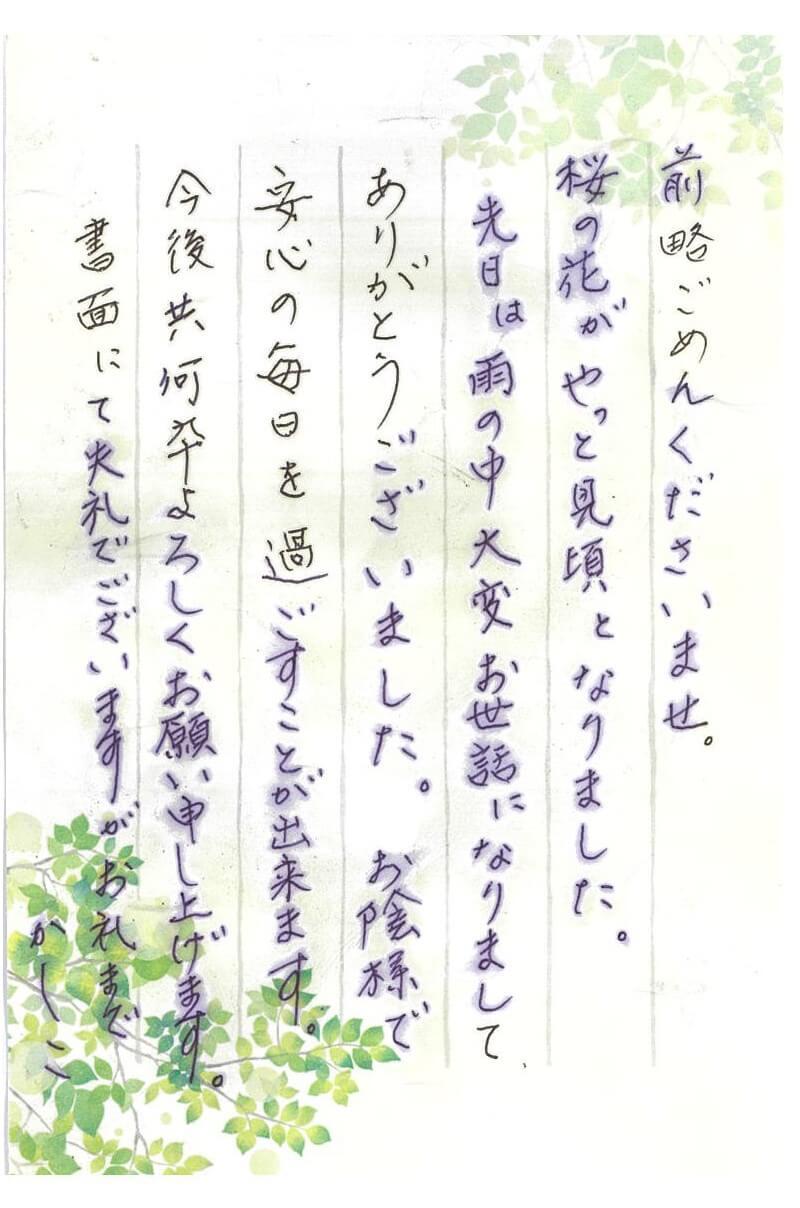 前略ごめんくださいませ。
桜の花がやっと見頃となりました。
先日は雨の中大変お世話になりまして
ありがとうございました。お陰様で
安心の毎日を過ごすことが出来ます。
今後共何卒よろしくお願い申し上げます。
書面にて失礼でございますがお礼まで
かしこ